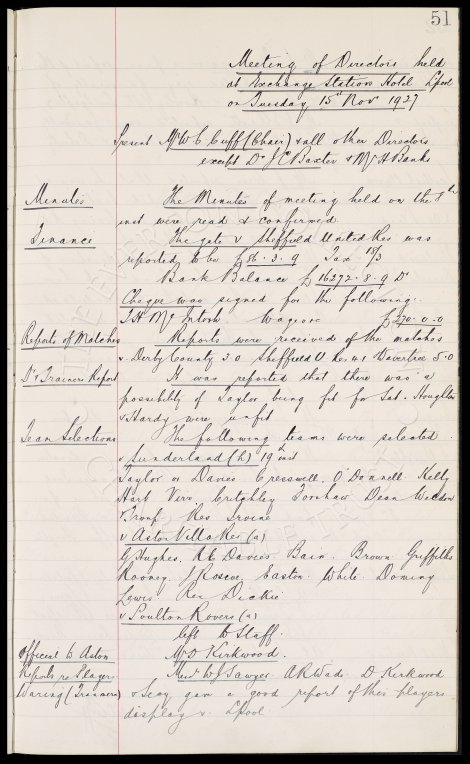 51
Meeting of Directors held
at Exchange Station Hotel L'pool
on Tuesday 15th Nov 1927
Present Mr W C Cuff (Chair) & all other Directors
except Dr J C Baxter & Mr A Banks
Minutes The Minutes of meeting held on the 8th
inst were read & confirmed
Finance The gate v Sheffield United Res was
reported to be £86.3.9 Tax 18/3
Bank Balance £16272.8.9 Dr
Cheque was signed for the following:
T H Mc Intosh Wages £270.0.0
Reports of Matches Reports were received of the matches
v Derby County 3.0 Sheffield U Res 4.1 Wavertree 5.0
Dr & Trainers Report It was reported that there was a
possibility of Taylor being fit for Sat. Houghton
& Hardy were unfit
Team Selections The following teams were selected
v Sunderland (h) 19th inst
Taylor or Davies Cresswell O'Donnell Kelly
Hart Virr Critchley Forshaw Dean Weldon
Troup Res Irvine
v Aston Villa Res (a)
G Hughes A E Davies Bain Brown Griffiths
Rooney J Roscoe Easton White Dominy
Lewis Res Dickie
v Poulton Rovers (a)
left to Staff.
Official to Aston Mr D Kirkwood.
Reports re Players Messrs W J Sawyer A R Wade D Kirkwood
Waring (Tranmere) & Secy gave a good report of this players
display v L'pool